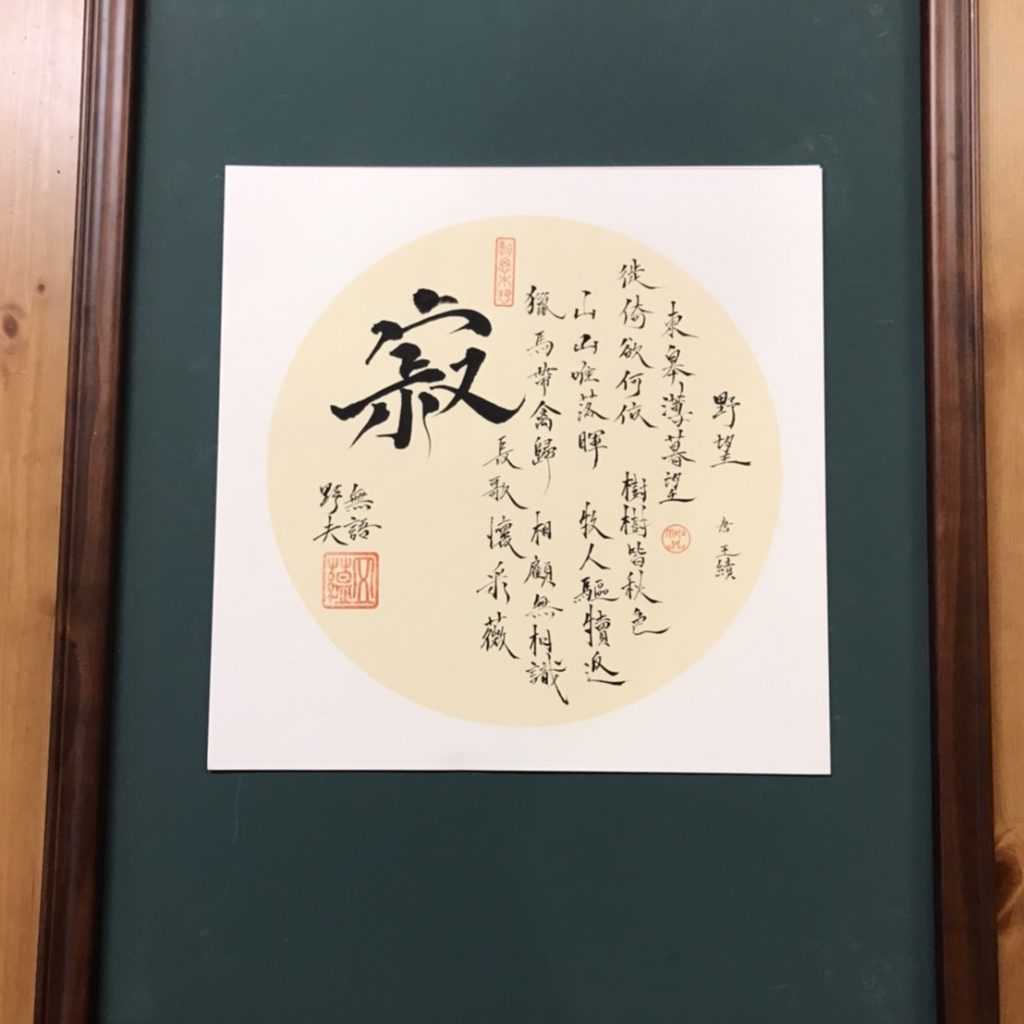 野望
唐 王績
東皋薄暮望
徙倚欲何依 樹樹皆秋色
山山唯落暉 牧人驅犢返
獵馬帶禽歸 相顧無相識
長歌懷采薇
寂
無語
野夫